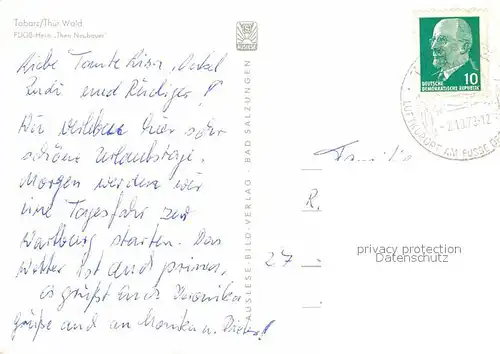 Tabarz/Thür. Wald
FDGB-Heim „Theo Neubauer"
Liebe Tante Lisa, Onkel
Rudi und Rüdiger!
Wir verleben hier sehr
schöne Urlaubstage.
Morgen werden wir
eine Tagesfahrt zur
Wartburg starten. Das
Wetter ist auch prima,
es grüßt Euch Veronika
Grüße auch an Monika u. Dieter!
AUSLESE-BILD-VERLAG · BAD SALZUNGEN
10
DEUTSCHE
DEMOKRATISCHE REPUBLIK
LUFTKURORT AM FUSSE DE
Familie
R.
27
privacy protection
Datenschutz